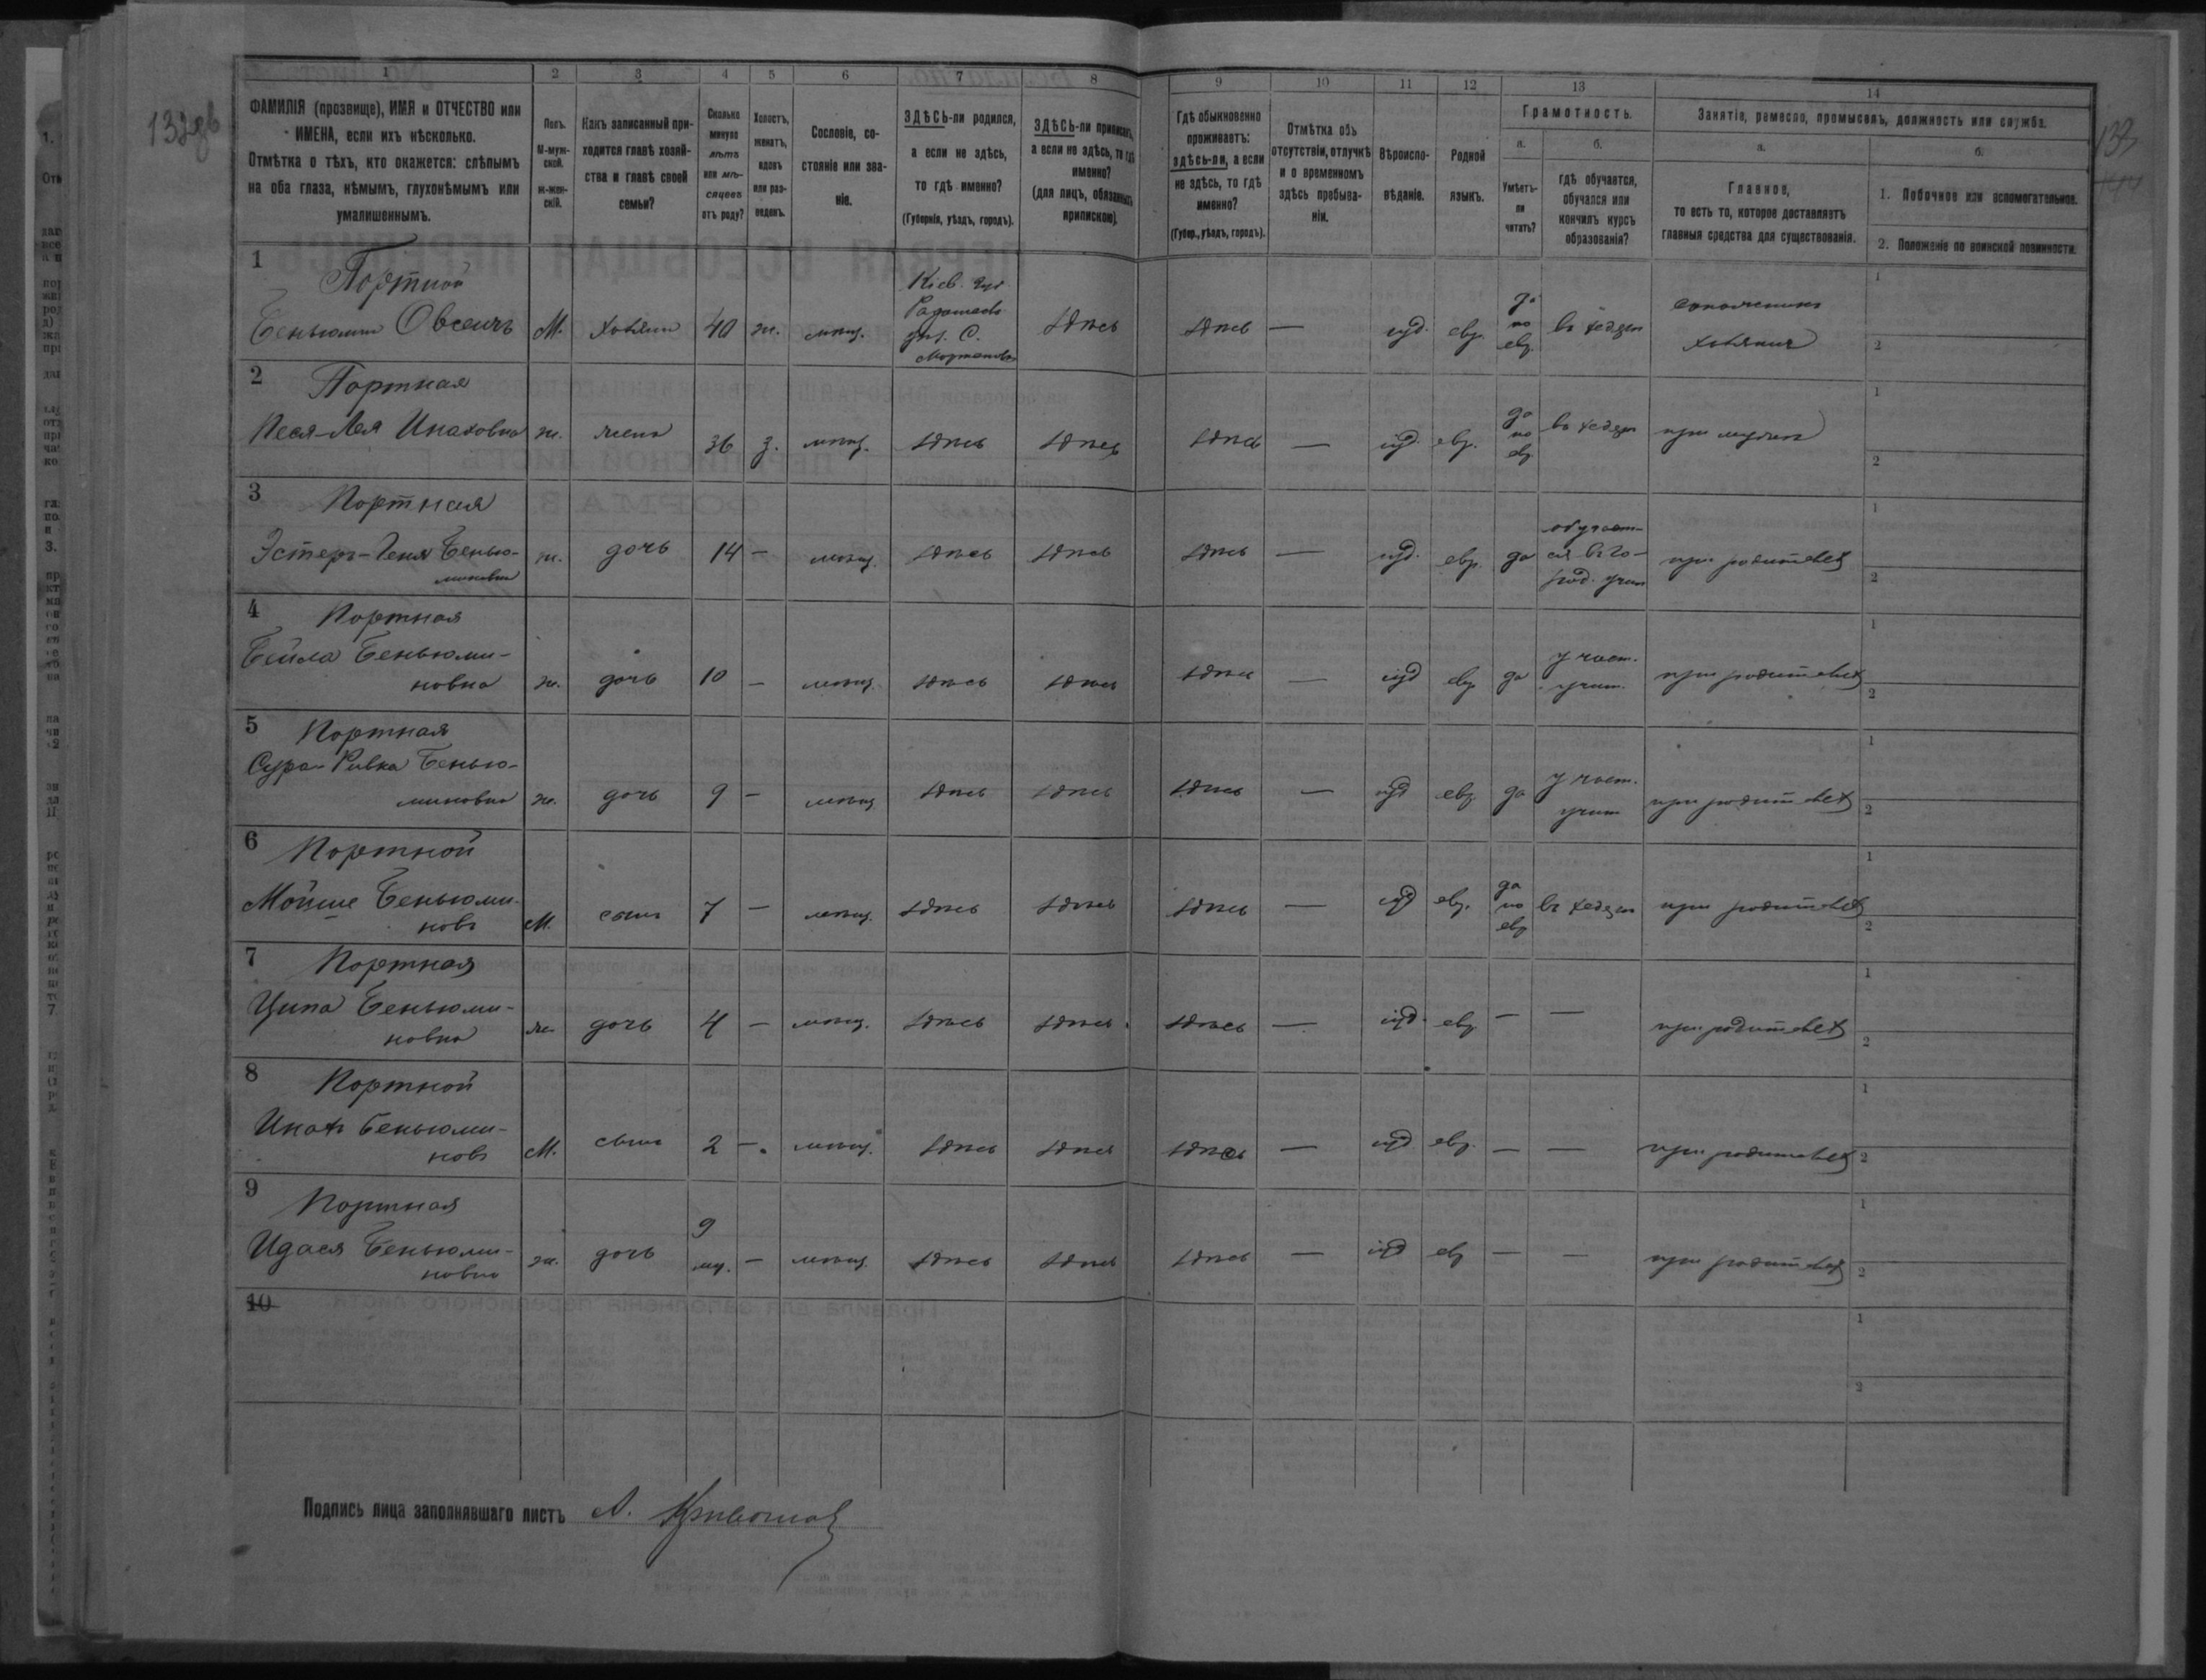 132об
133
1 2 3 4 5 6 7 8 9 10 11 12 13 14
ФАМИЛІЯ (прозвище), ИМЯ и ОТЧЕСТВО или
ИМЕНА, если ихъ нѣсколько.
Отмѣтка о тѣхъ, кто окажется: слѣпымъ
на оба глаза, нѣмымъ, глухонѣмымъ или
умалишеннымъ.
Полъ.
М-муж-
ской.
ж-жен-
скій.
Какъ записанный при-
ходится главѣ хозяй-
ства и главѣ своей
семьи?
Сколько
минуло
лѣтъ
или мѣ-
сяцевъ
отъ роду?
Холостъ,
женатъ,
вдовъ
или раз-
веденъ.
Сословіе, со-
стояніе или зва-
ніе.
ЗДѢСЬ-ли родился,
а если не здѣсь,
то гдѣ именно?
(Губернія, уѣздъ, городъ).
ЗДѢСЬ-ли приписанъ,
а если не здѣсь, то гдѣ
именно?
(для лицъ, обязанныхъ
припискою).
Гдѣ обыкновенно
проживаетъ:
здѣсь-ли, а если
не здѣсь, то гдѣ
именно?
(Губер., уѣздъ, городъ).
Отмѣтка объ
отсутствіи, отлучкѣ
и о временномъ
здѣсь пребыва-
ніи.
Вѣроиспо-
вѣданіе.
Родной
языкъ.
Грамотность.
а.
Умѣетъ-
ли
читать?
б.
гдѣ обучается,
обучался или
кончилъ курсъ
образованія?
Занятіе, ремесло, промыселъ, должность или служба.
а.
Главное,
то есть то, которое доставляетъ
главныя средства для существованія.
б.
1. Побочное или вспомогательное.
2. Положеніе по воинской повинности.
1 Портной
Беньюминъ Овсеичъ М. хозяинъ 40 ж. мѣщ. Кіев. губ. С. здѣсь здѣсь — іуд. евр. да по евр. въ хедерѣ
хозяинъ
1
2
2 Портная
Песя-Лея Инаховна ж. жена 36 з. мѣщ. здѣсь здѣсь здѣсь — іуд. евр. да по евр въ хедерѣ при мужѣ
1
2
3 Портная
Эстеръ-Геня Бенью-
миновна ж. дочь 14 — мѣщ. здѣсь здѣсь здѣсь — іуд. евр. да обучает-
ся въ го-
род. учил при родителях
1
2
4 Портная
Бейла Беньюми-
новна ж. дочь 10 — мѣщ. здѣсь здѣсь здѣсь — іуд евр да у част.
учит. при родителях
1
2
5 Портная
Сура-Ривка Бенью-
миновна ж. дочь 9 — мѣщ здѣсь здѣсь здѣсь — іуд евр. да у част.
учит при родителях
1
2
6 Портной
Мойше Беньюми-
новъ М. сынъ 7 — мѣщ. здѣсь здѣсь здѣсь — іуд евр. да по евр въ хедерѣ при родителях
1
2
7 Портная
Ципа Беньюми-
новна ж. дочь 4 — мѣщ. здѣсь здѣсь здѣсь — іуд. евр — — при родителях
1
2
8 Портной
Инохъ Беньюми-
новъ М. сынъ 2 — мѣщ. здѣсь здѣсь здѣсь — іуд евр. — — при родителях
1
2
9 Портная
Идася Беньюми-
новна ж. дочь 9 мц. — мѣщ здѣсь здѣсь здѣсь — іуд евр — — при родителях
1
2
10
1
2
Подпись лица заполнявшаго листъ А.